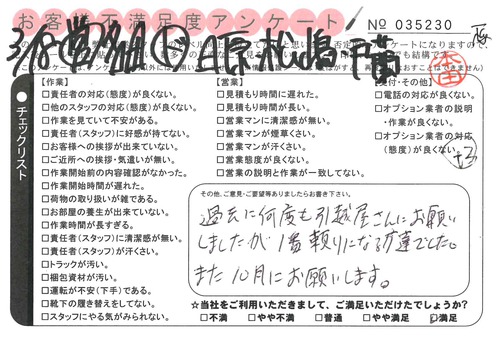 お客様不満足度アンケート
No 035230
【作業】
□責任者の対応(態度)が良くない。
□他のスタッフの対応(態度)が良くない。
□作業を見ていて不安がある。
□責任者(スタッフ)に好感が持てない。
□お客様への挨拶が出来ていない。
□ご近所への挨拶・気遣いが無い。
□作業開始前の内容確認がなかった。
□作業開始時間が遅れた。
□荷物の取り扱いが雑である。
□お部屋の養生が出来ていない。
□作業時間が長すぎる。
□責任者(スタッフ)に清潔感が無い。
□責任者(スタッフ)が汗くさい。
□トラックが汚い。
□梱包資材が汚い。
□運転が不安(下手)である。
□靴下の履き替えをしてない。
□スタッフにやる気がみられない。
【営業】
□見積もり時間に遅れた。
□見積もり時間が長い。
□営業マンに清潔感が無い。
□営業マンが煙草くさい。
□営業マンが汗くさい。
□営業態度が良くない。
□営業の説明と作業が一致してない。
【受付・その他】
□電話の対応が良くない。
□オプション業者の説明
・作業が良くない。
□オプション業者の対応
(態度)が良くない。
チェックリスト
その他、ご意見・ご要望等ありましたらお書き下さい。
過去に何度も引越屋さんにお願い
しましたが、1番頼りになる方達でした。
また10月にお願いします。
☆当社をご利用いただきまして、ご満足いただけたでしょうか?
□不満 □やや不満 □普通 □やや満足 ☑満足